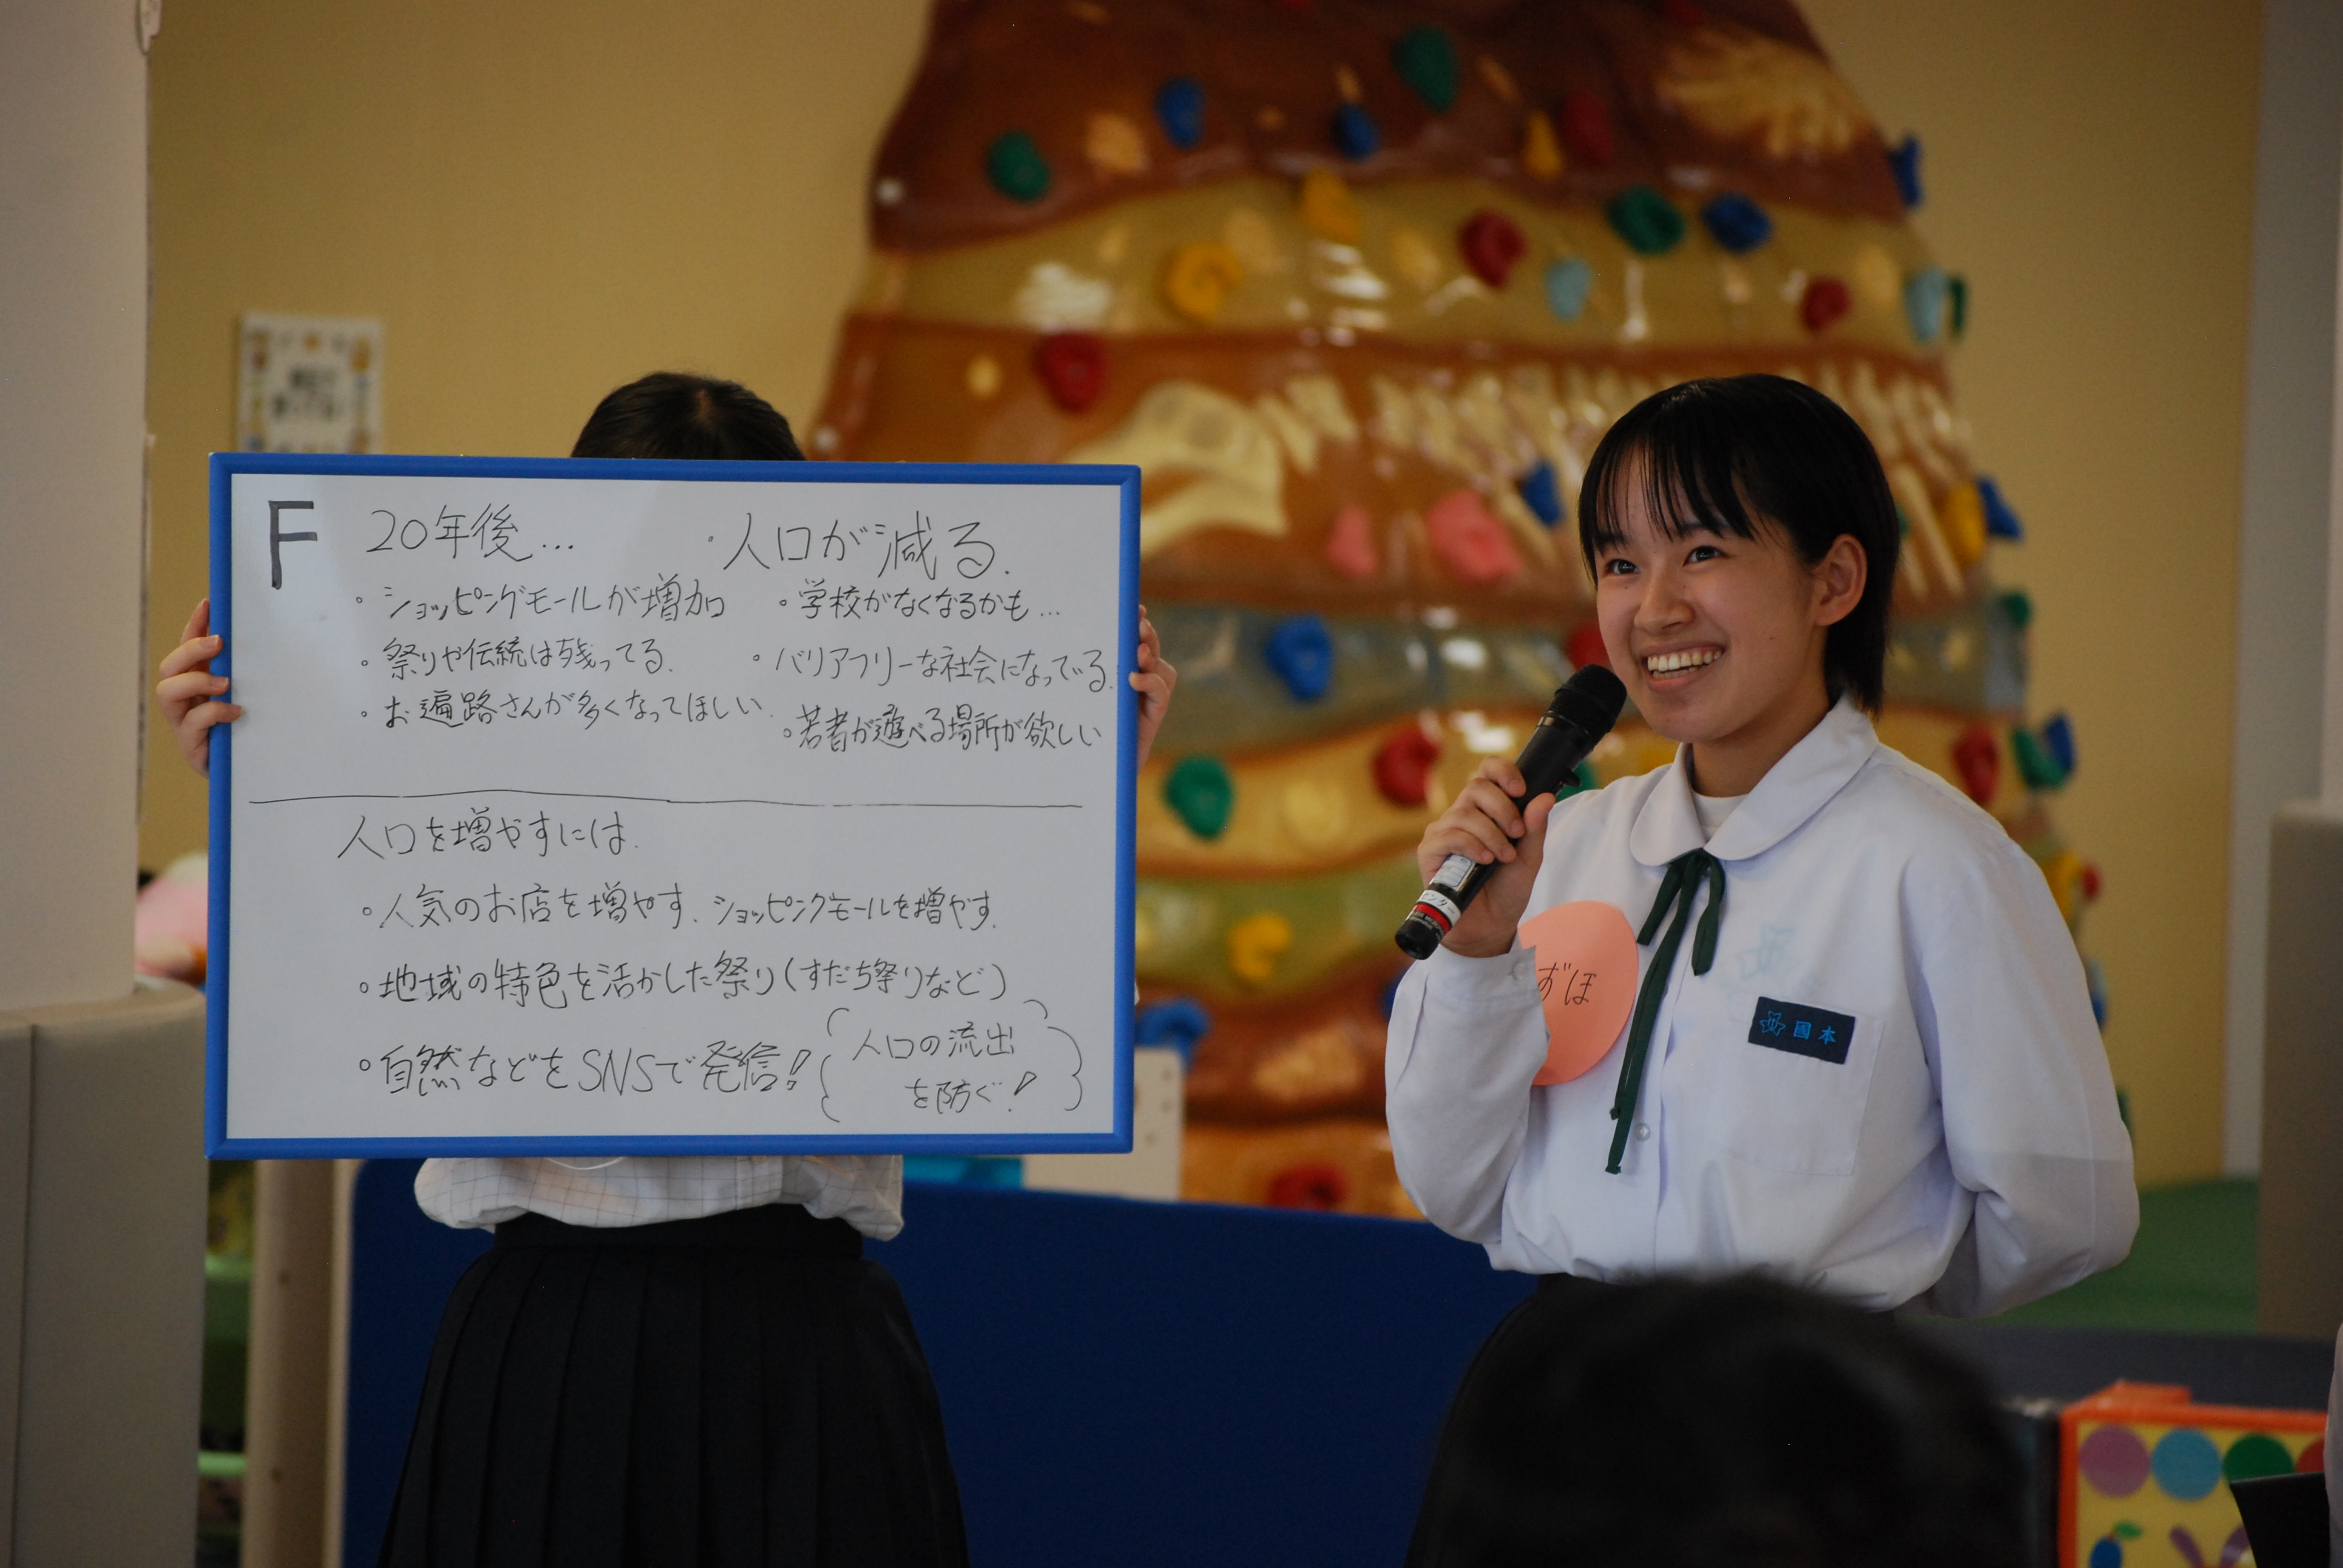 F
20年後...
・ショッピングモールが増加
・祭りや伝統は残ってる.
・お遍路さんが多くなってほしい.
・人口が減る.
・学校がなくなるかも...
・バリアフリーな社会になってる.
・若者が遊べる場所が欲しい
人口を増やすには.
・人気のお店を増やす. ショッピングモールを増やす.
・地域の特色を活かした祭り(すだち祭りなど)
・自然などをSNSで発信!
人口の流出
を防ぐ!
ずほ
國本